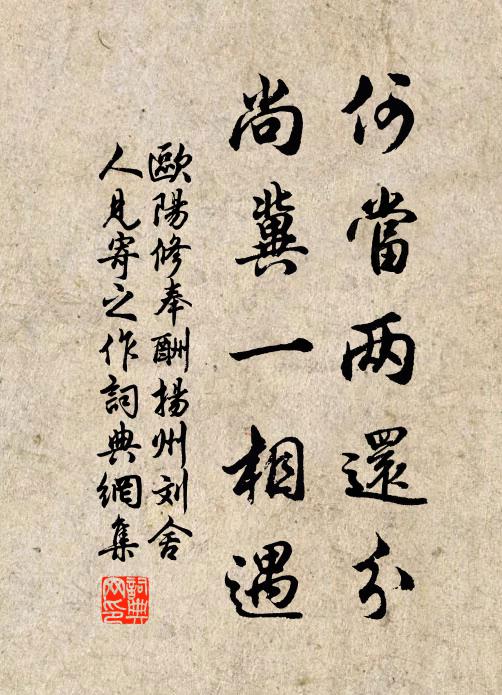 何當两還分
尚冀一相遇
歐陽修奉酬揚州刘舍
人見寄之作詞典網集
詞典
网印